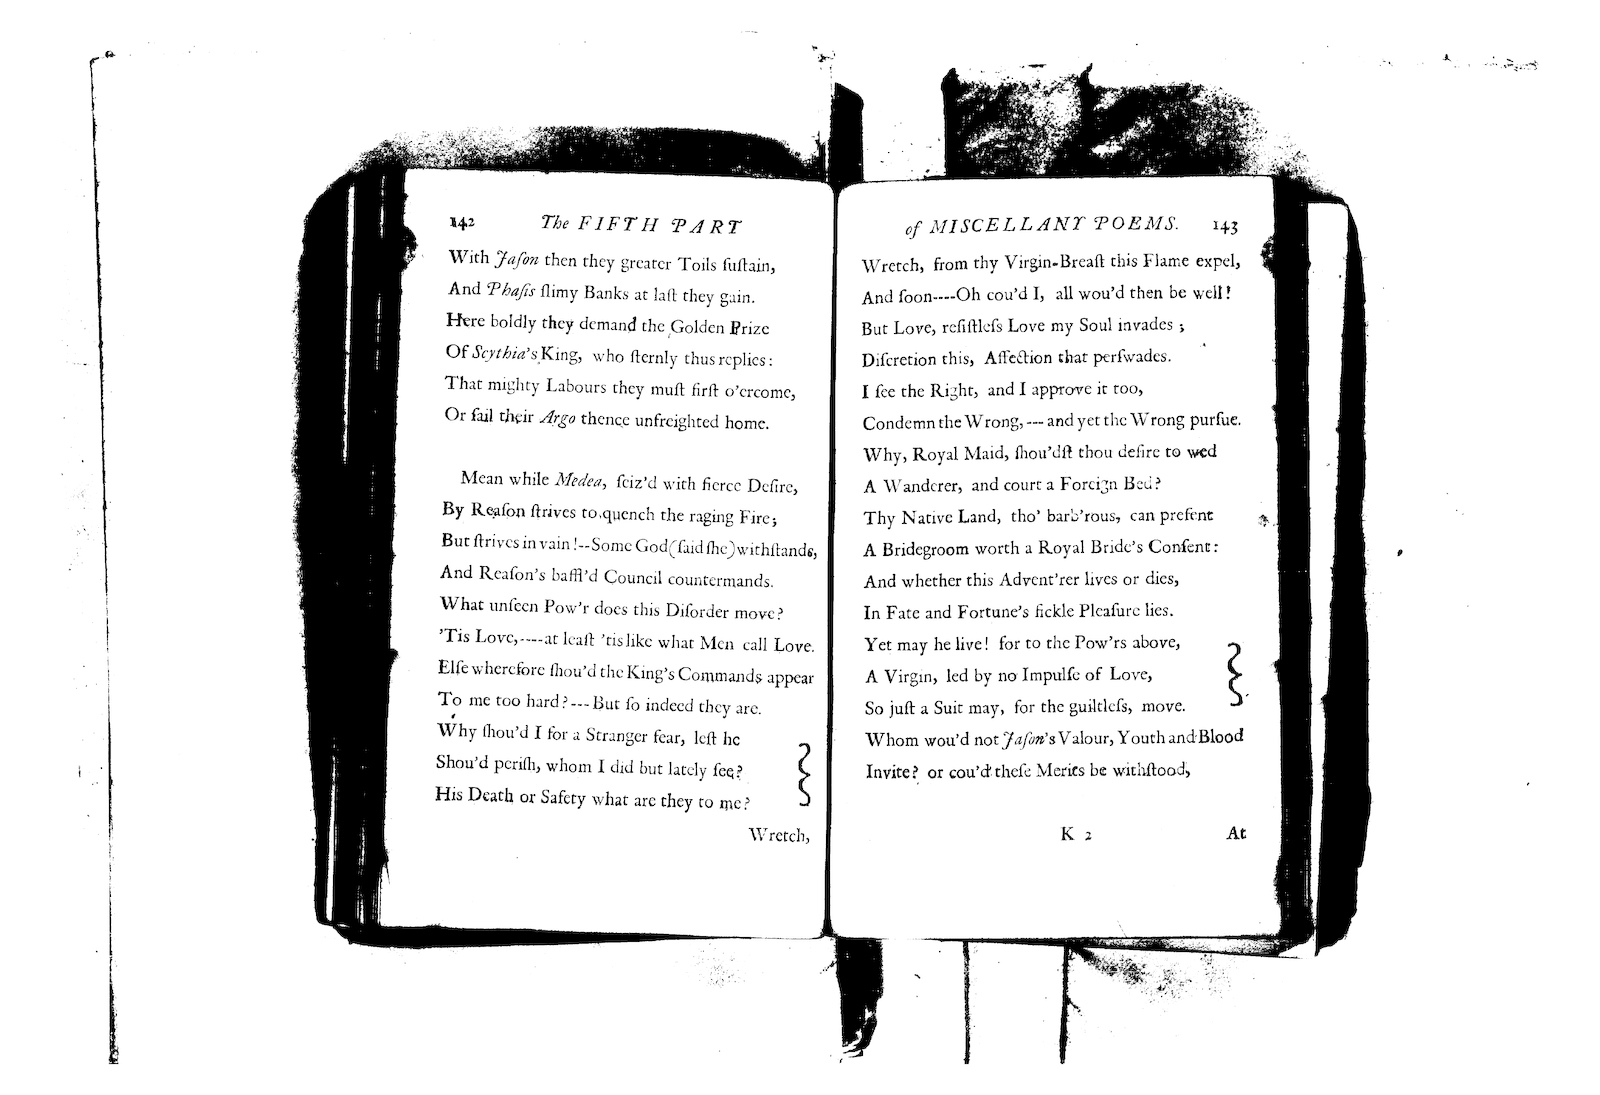 142 The FIFTH PART
With Jaſon then they greater Toils ſuſtain,
And Phaſis ſlimy Banks at laſt they gain.
Here boldly they demand the Golden Prize
Of Scythia's King, who ſternly thus replies:
That mighty Labours they muſt firſt o'ercome,
Or ſail their Argo thence unfreighted home.
Mean while Medea, ſeiz'd with fierce Deſire,
By Reaſon ſtrives to quench the raging Fire;
But ſtrives in vain!--Some God (ſaid ſhe) withſtands,
And Reaſon's baffl'd Council countermands.
What unſeen Pow'r does this Diſorder move?
'Tis Love,----at leaſt 'tis like what Men call Love.
Elſe wherefore ſhou'd the King's Commands appear
To me too hard?---But ſo indeed they are.
Why ſhou'd I for a Stranger fear, leſt he
Shou'd periſh, whom I did but lately ſee?
His Death or Safety what are they to me?
Wretch,
of MISCELLANY POEMS. 143
Wretch, from thy Virgin-Breaſt this Flame expel,
And ſoon----Oh cou'd I, all wou'd then be well!
But Love, reſiſtleſs Love my Soul invades;
Diſcretion this, Affection that perſwades.
I ſee the Right, and I approve it too,
Condemn the Wrong,---and yet the Wrong purſue.
Why, Royal Maid, ſhou'dſt thou deſire to wed
A Wanderer, and court a Foreign Bed?
Thy Native Land, tho' barb'rous, can preſent
A Bridegroom worth a Royal Bride's Conſent:
And whether this Advent'rer lives or dies,
In Fate and Fortune's fickle Pleaſure lies.
Yet may he live! for to the Pow'rs above,
A Virgin, led by no Impulſe of Love,
So juſt a Suit may, for the guiltleſs, move.
Whom wou'd not Jaſon's Valour, Youth and Blood
Invite? or cou'd theſe Merits be withſtood,
K 2 At